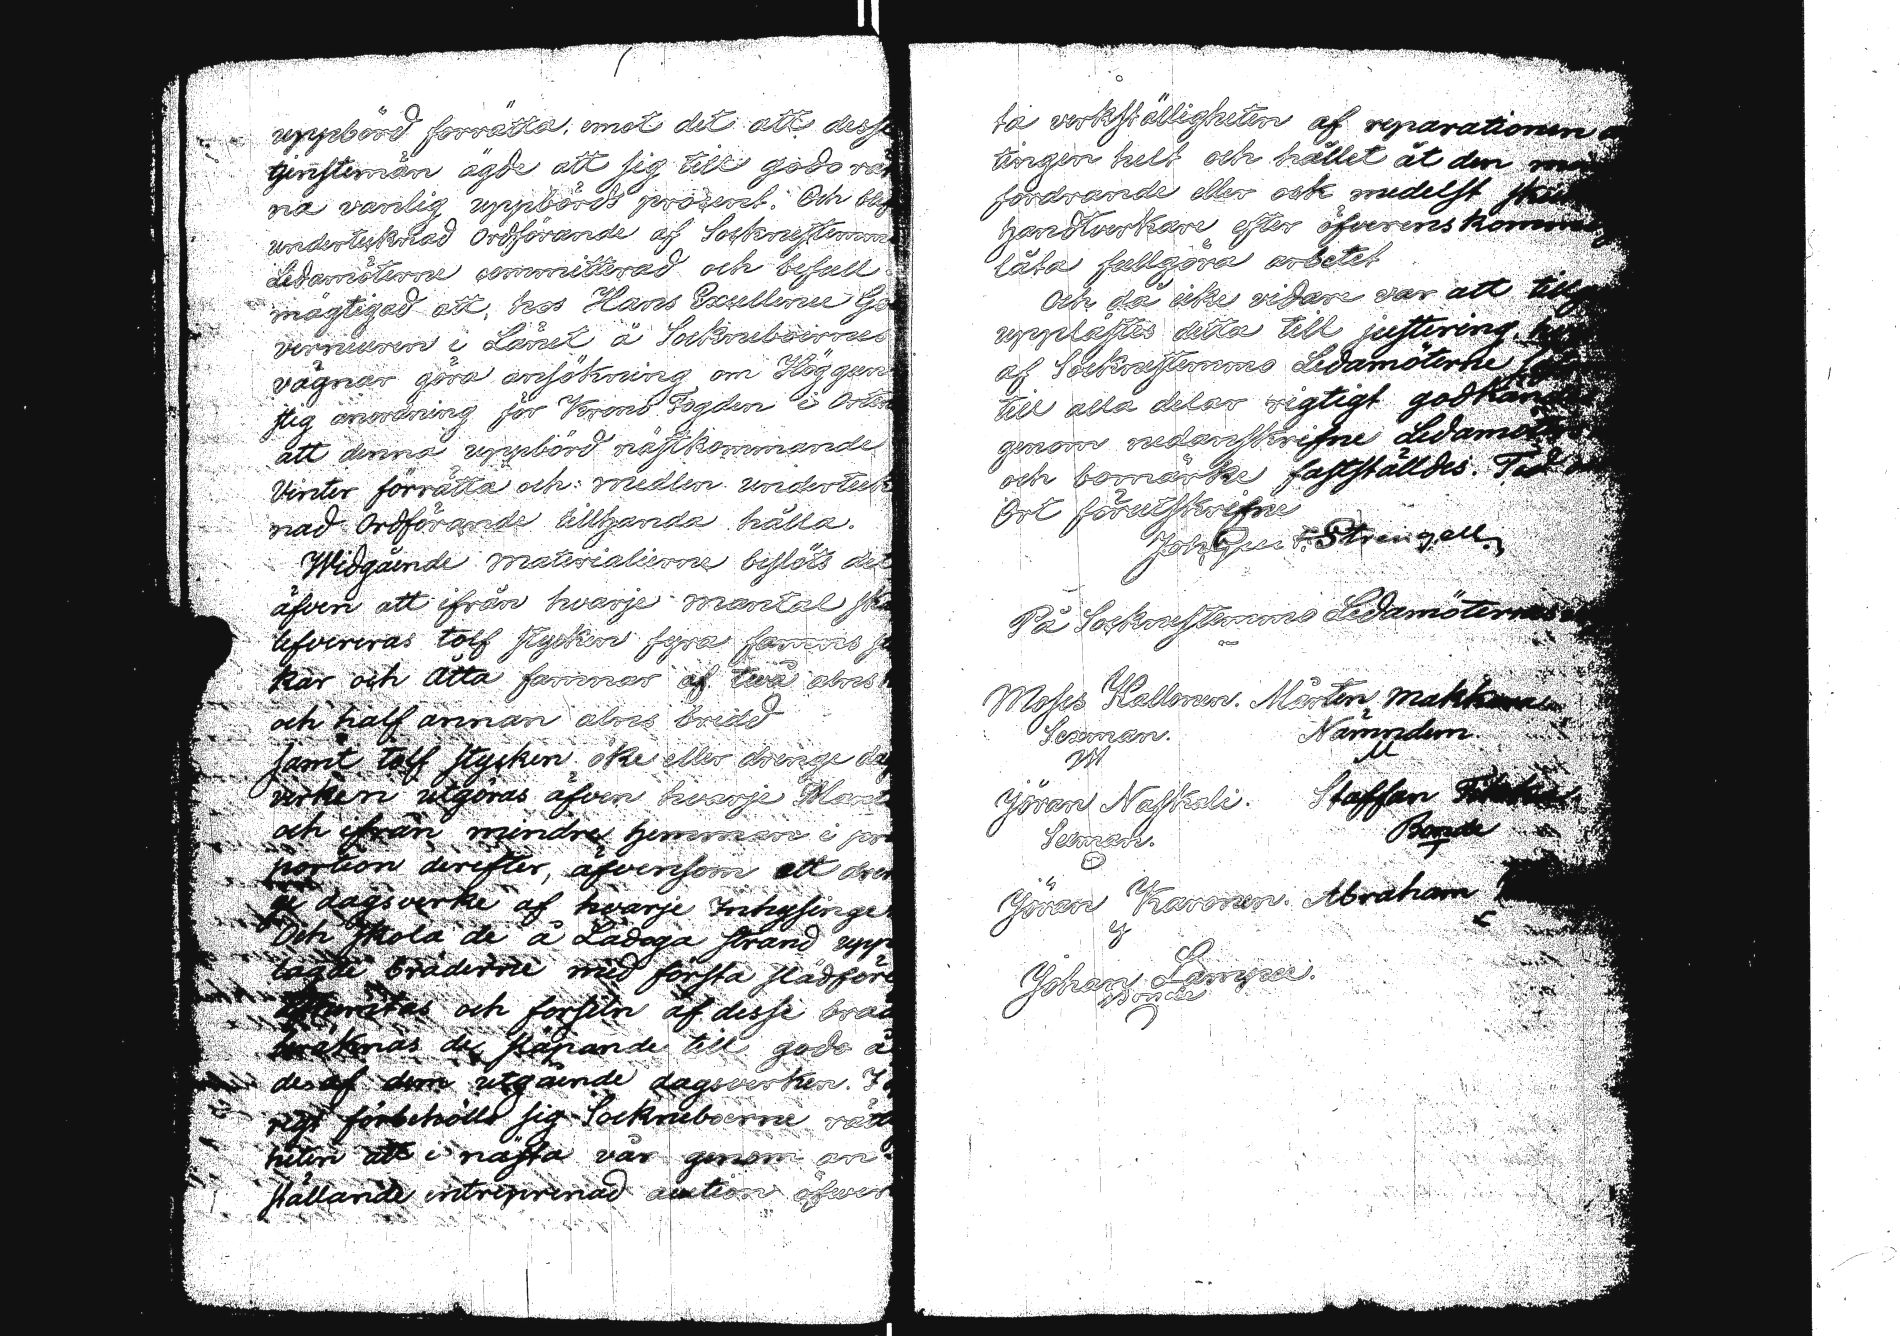 uppbörd förrätta, emot det att desse
tjenstemän ägde att sig till godo räk
na vanlig uppbörds procent. Och blef
undertecknad Ordförande af Socknestemmo
Ledamöterne committerad och befull
mägtigad att, hos Hans Excellence Go
verneuren i Länet å Sockneboernes
vägnar göra ansökning om Höggun
stig anordning för Krono Fogden i Orten
att denna uppbörd nästkommande
Vinter förrätta och medlen underteck
nad Ordförande tillhanda hålla.
Widgående materialierne beslöts det
äfven att ifrån hvarje mantal ska
lefvereras tolf stycken fyra famns
kar och Åtta famnar af två alns
och half annan alns bredd
samt tolf stycken öke eller drenge dag
verken utgöras äfven hvarje Mant
och ifrån mindre hemman i pro
portion derefter, äfvensom ett dren
ge dagsverke af hvarje Inhysinge
Och skola de å Ladoga strand upp
lagde bräderne med första slädföre
afhemtas och forseln af desse bräd
beräknas de släpande till godo å
de af dem utgående dagsverken. I ö
rigt förbehöllo sig Sockneboerne rätt
heten att i nästa vår genom an
ställande entreprenad auction öfver
ta verkställigheten af reparationen
tingen helt och hållet åt den min
fordrande eller ock medelst
handtverkare efter öfverenskomme
låta fullgöra arbetet
Och då icke vidare var att tillgö
upplästes detta till justering
af Sockrnestemmo Ledamöterne
till alla delar rigtigt godkändes
genom nedanskrifne Ledamöters
och bomärke fastställdes. Tid
Ort förutskrifne
Joh: F: Strengell.
På Socknestemmo Ledamöternes
Moses Kallonen. Mårten Makkonen
Sexman. Nämndem
M
Jöran Naskali. Staffan
Sexman. Bonde
Jöran Karonen. Abraham
Johan Lampu.
Bonde